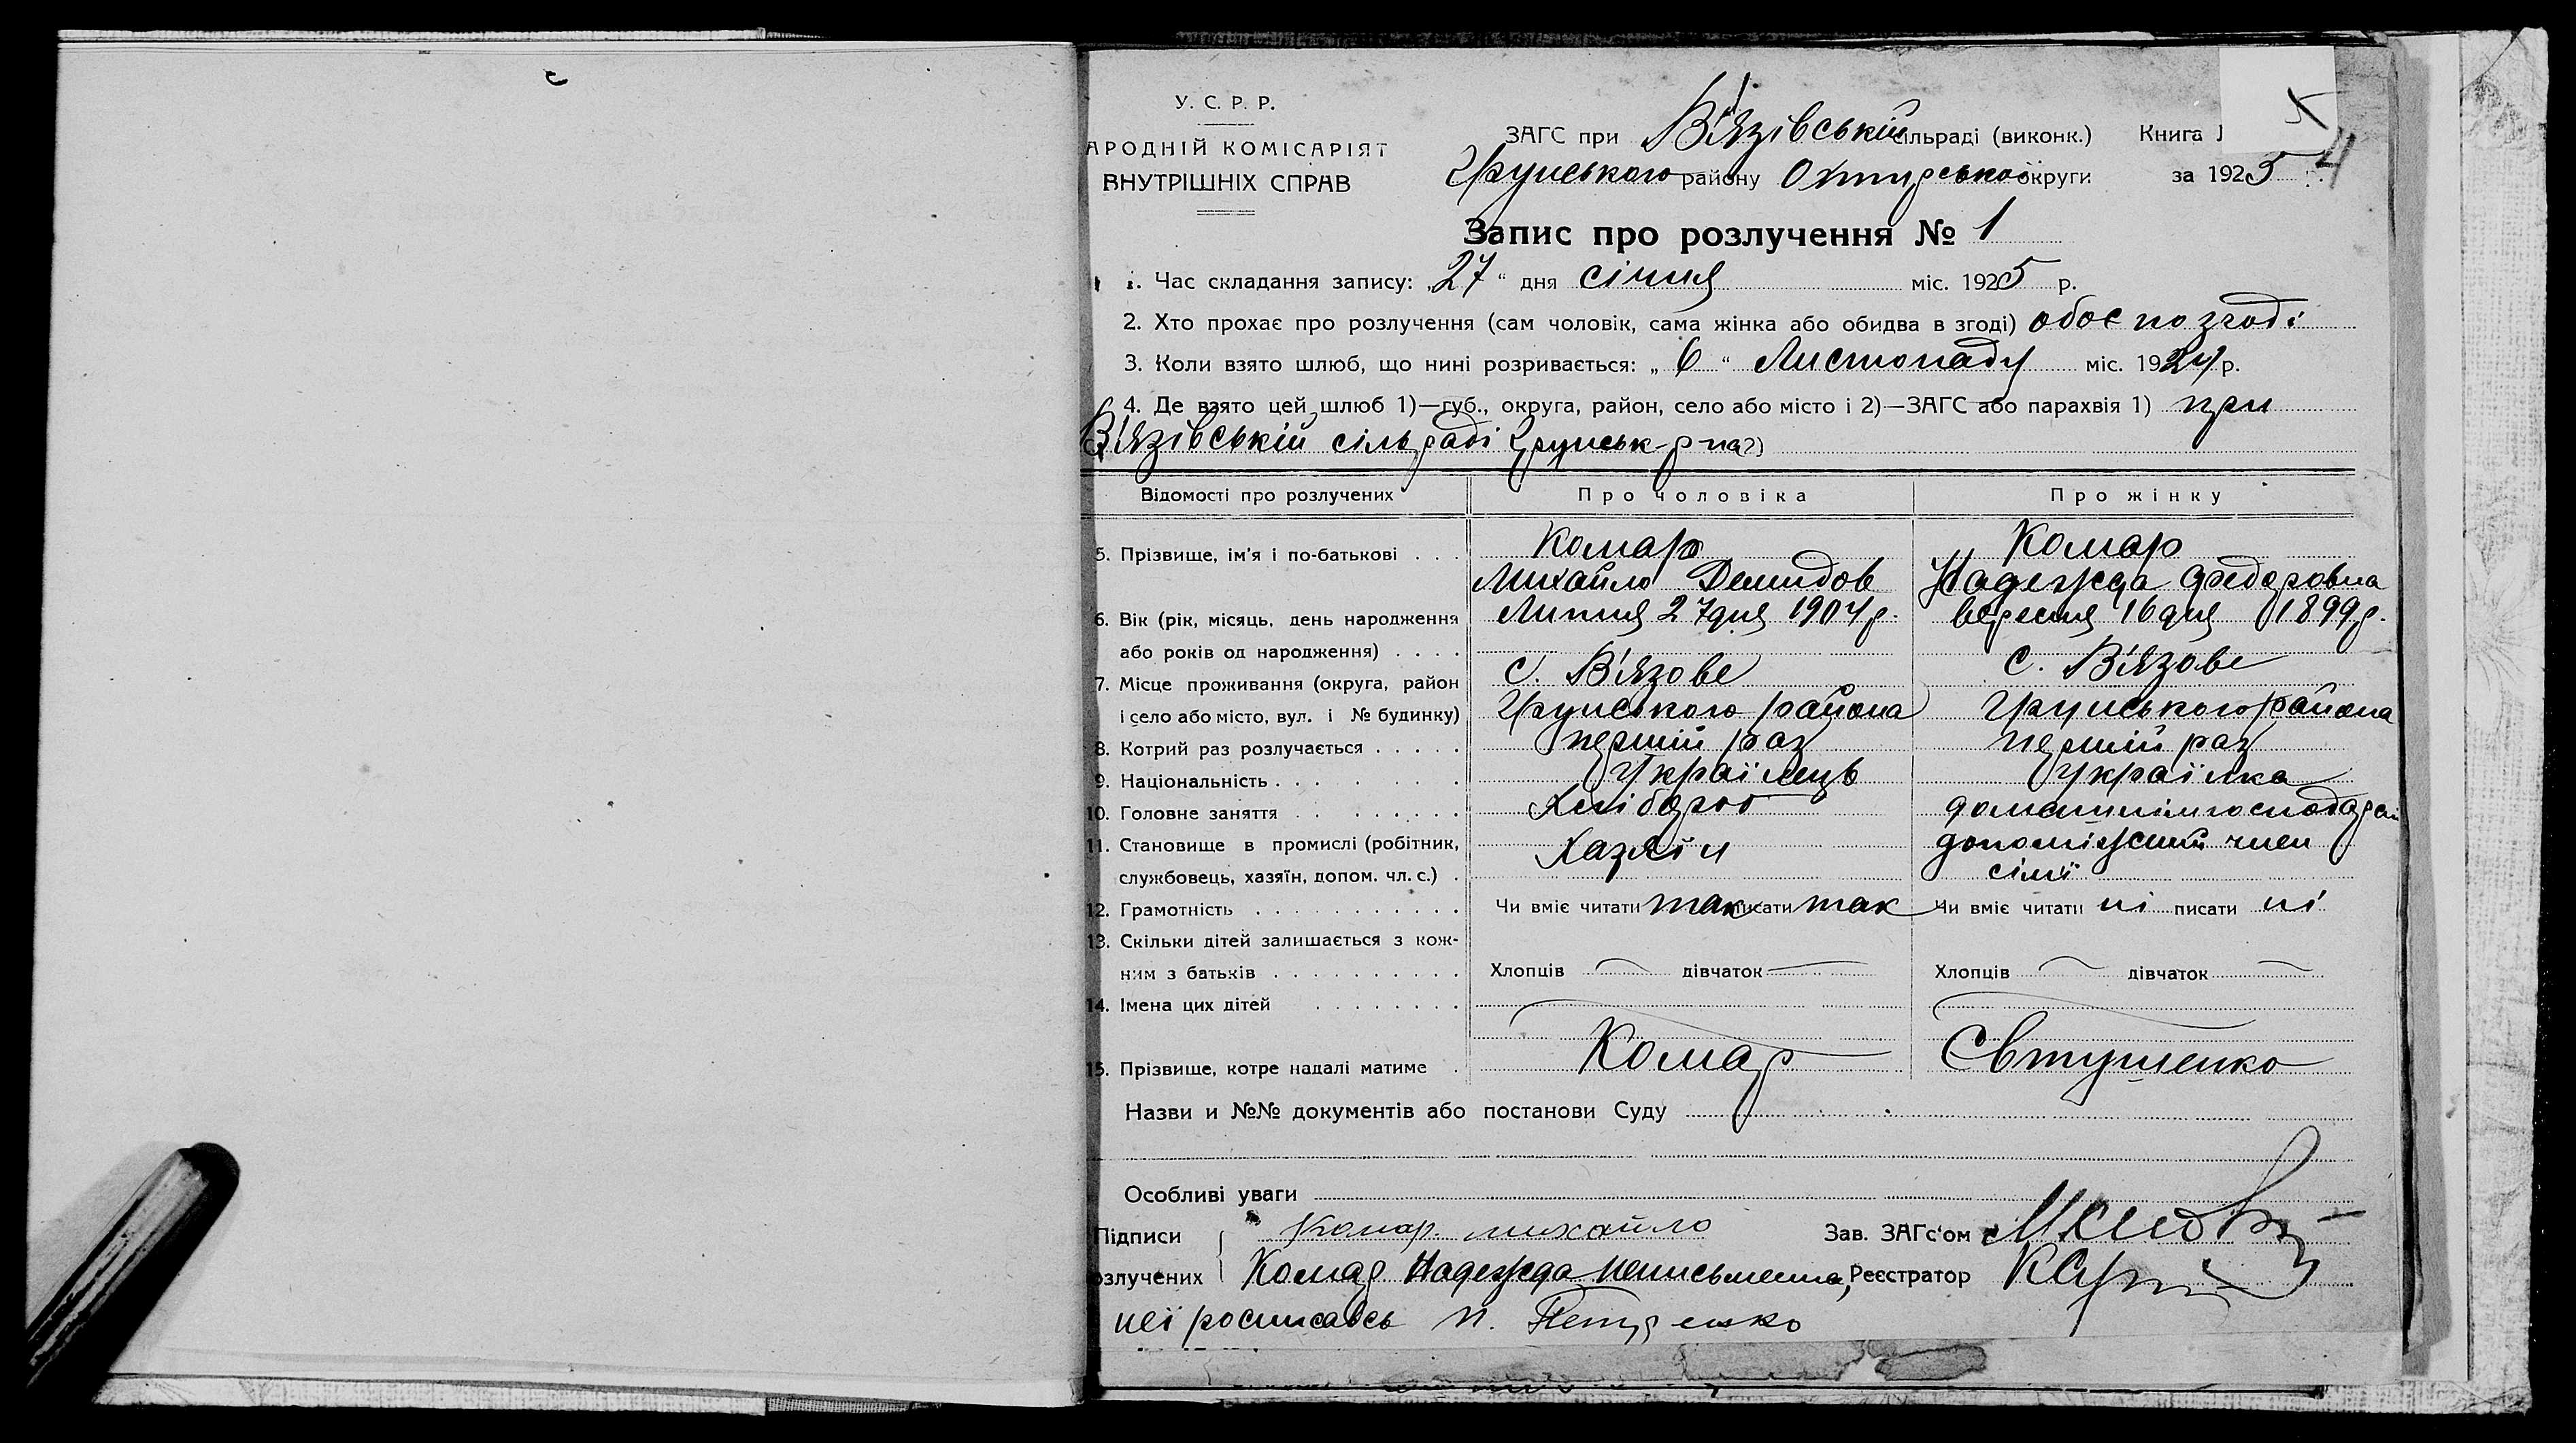 5
4
У. С. Р. Р.
АРОДНІЙ КОМІСАРІЯТ
ВНУТРІШНІХ СПРАВ
ЗАГС при В'язівській сільраді (виконк.) Книга
Грунського району Охтирської округи за 1925
Запис про розлучення № 1
1. Час складання запису: „27“ дня січня міс. 1925 р.
2. Хто прохає про розлучення (сам чоловік, сама жінка або обидва в згоді) обоє по згоді
3. Коли взято шлюб, що нині розривається: „6“ Листопаду міс. 1924 р.
4. Де взято цей шлюб 1)—губ., округа, район, село або місто і 2)—ЗАГС або парахвія 1) при
В'язівській сільраді Грунськ р-на 2)
Відомості про розлучених Про чоловіка Про жінку
5. Прізвище, ім'я і по-батькові . . . Комар Комар
Михайло Демидов Надежда Федоровна
6. Вік (рік, місяць, день народження Липня 27 дня 1904 р. вересня 16 дня 1899 р.
або років од народження) . . . .
7. Місце проживання (округа, район с. В'язове с. В'язове
і село або місто, вул. і № будинку) Грунського района Грунського района
8. Котрий раз розлучається . . . . . перший раз перший раз
9. Національність . . . . . . Українець Українка
10. Головне заняття . . . . . . . . Хлібороб домашнім господарст
11. Становище в промислі (робітник, Хазяїн допоміжний член
службовець, хазяїн, допом. чл. с.) . сім'ї
12. Грамотність . . . . . . . . . . . Чи вміє читати так писати так Чи вміє читати ні писати ні
13. Скільки дітей залишається з кож-
ним з батьків . . . . . . . . . . Хлопців — дівчаток — Хлопців — дівчаток —
14. Імена цих дітей . . . . . . . .
15. Прізвище, котре надалі матиме . Комар Євтушенко
Назви и №№ документів або постанови Суду
Особливі уваги
Підписи Комар михайло Зав. ЗАГс'ом
озлучених Комар Надежда неписьменна, Реєстратор
неї росписавсь П. Петренко